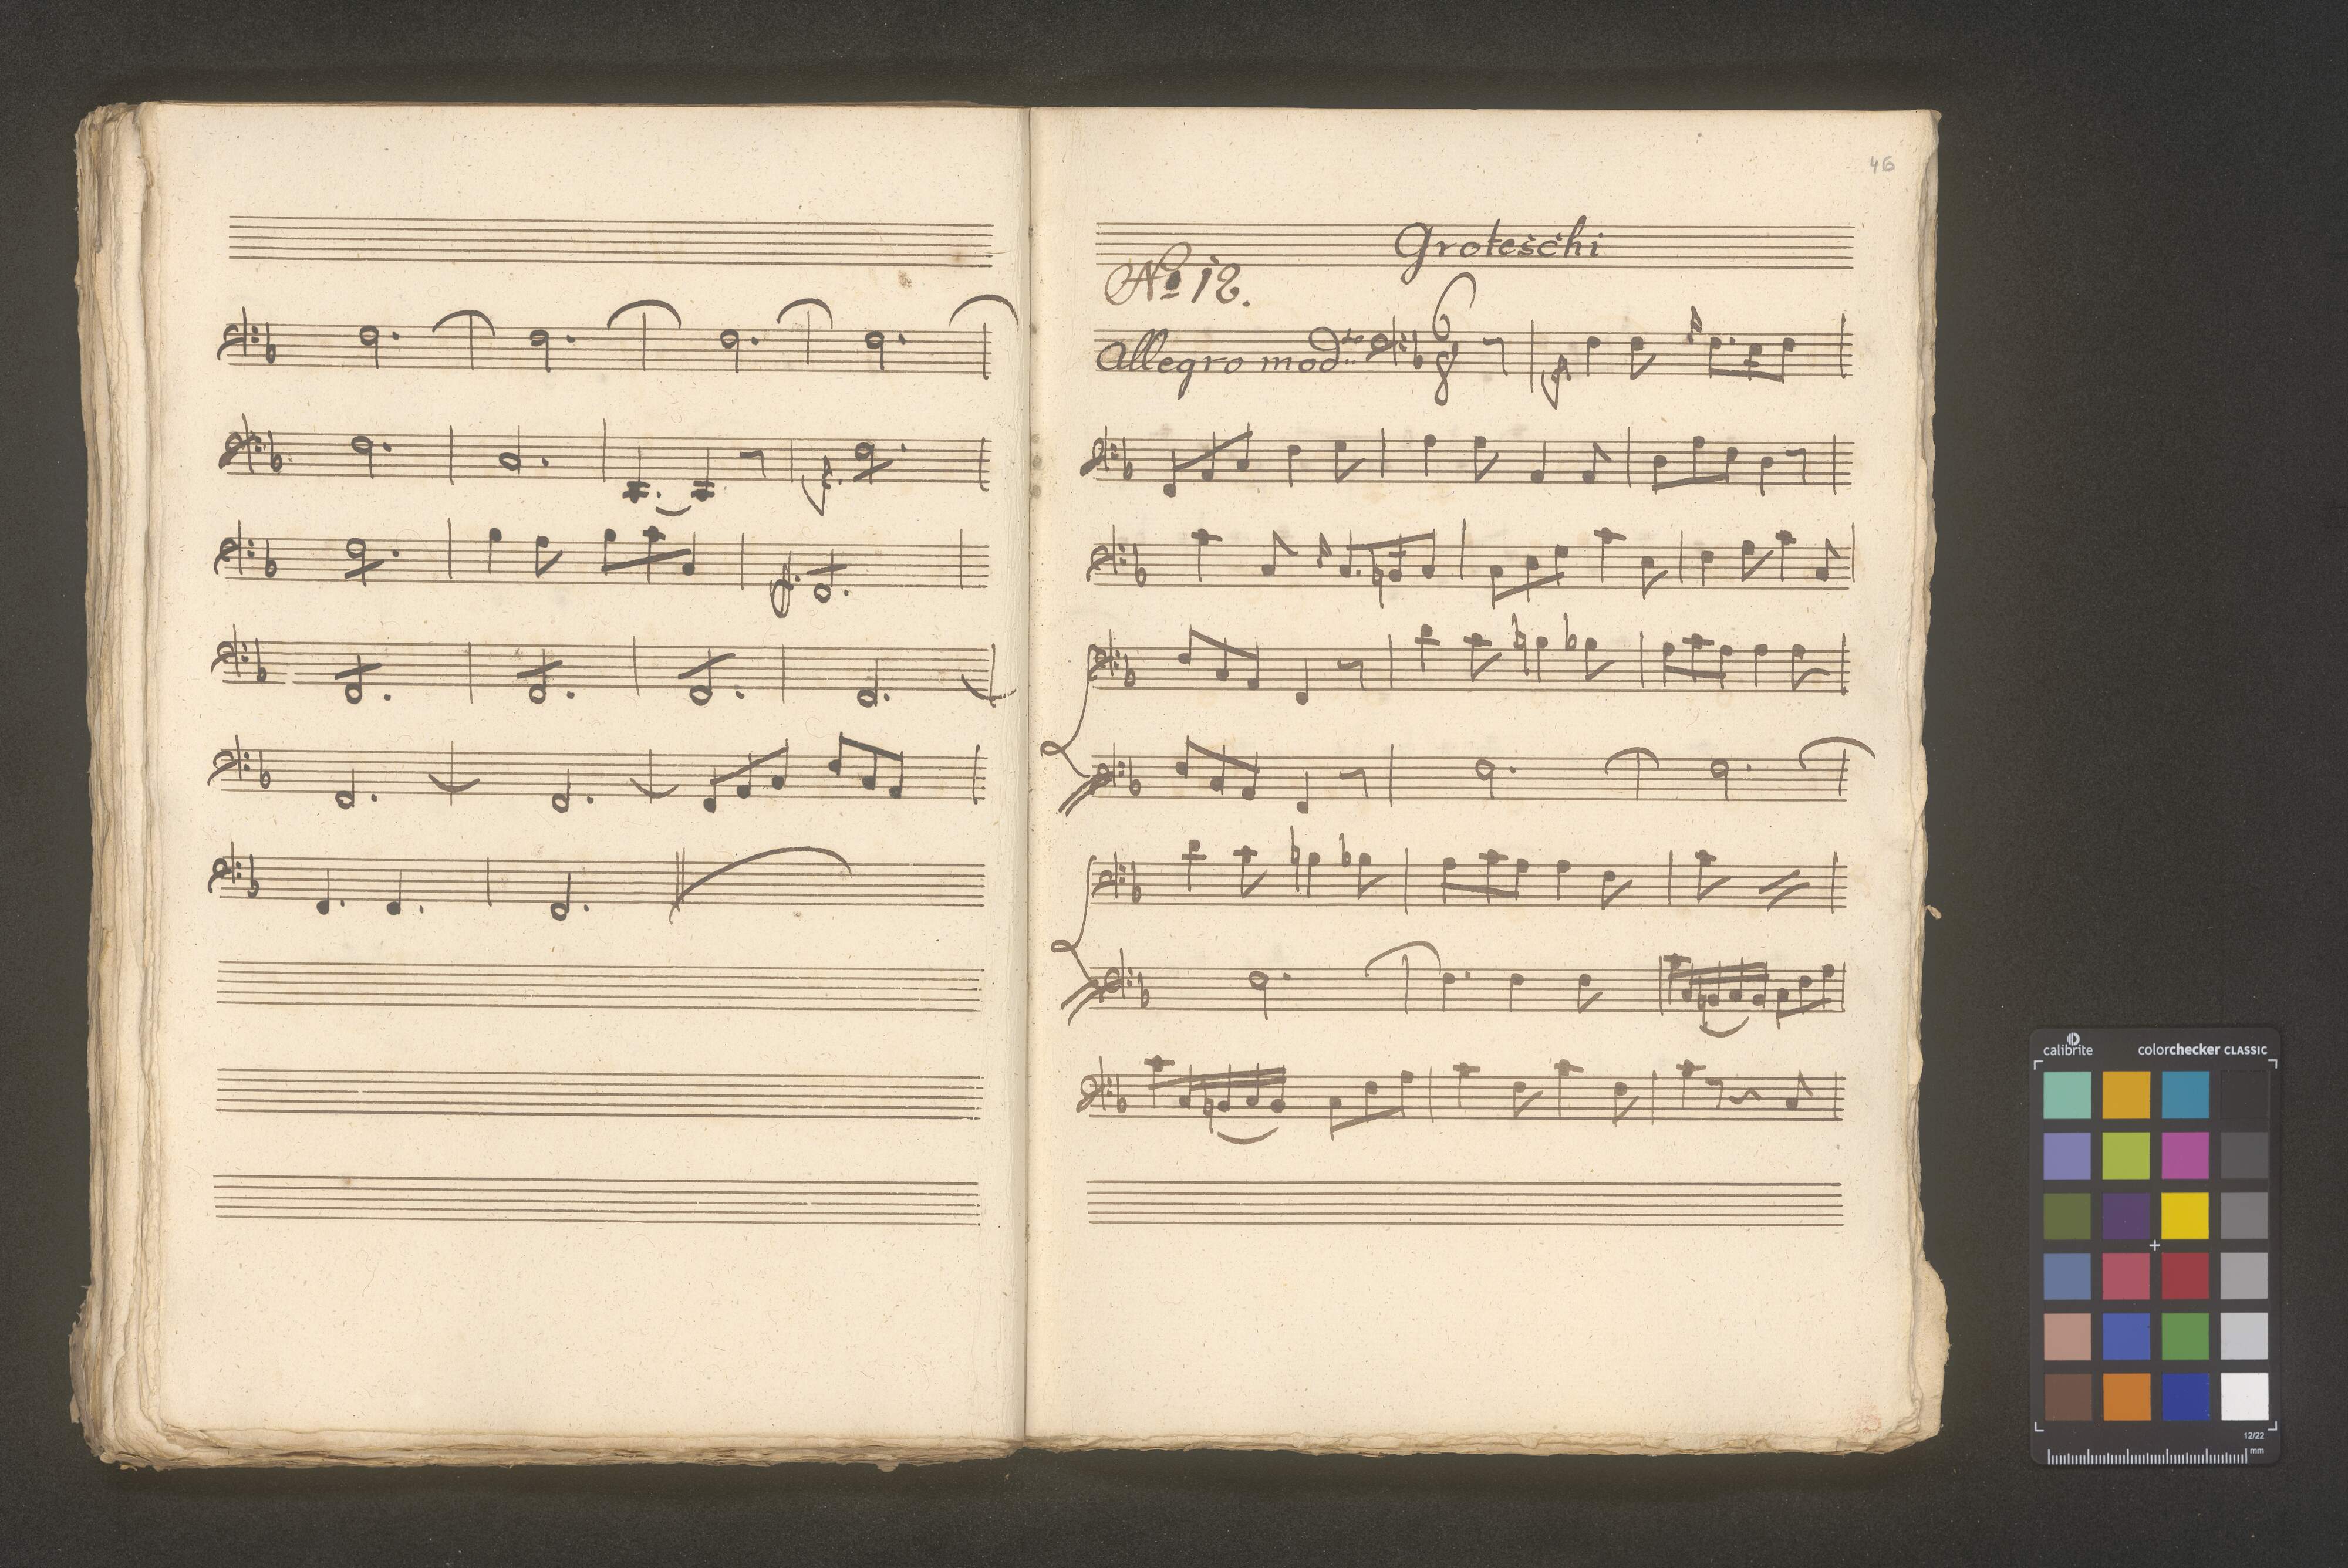 46
Groteschi
No 12.
Allegro modto
6
8
calibrite colorchecker CLASSIC
12/22
mm